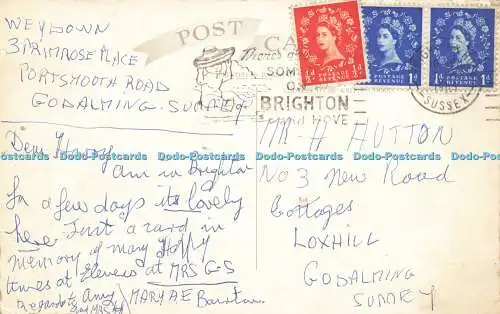 WEYDOWN
3 PRIMROSE PLACE
PORTSMOUTH ROAD
GODALMING. SURREY
POST CA
There's
SOM
ON
BRIGHTON
AND HOVE
SUSSEX
½d ½d
POSTAGE REVENUE
1d 1d
POSTAGE REVENUE
1d 1d
POSTAGE REVENUE
Dear Harry
am in Brighton
for a few days its lovely
here Just a card in
memory of many Happy
times at Elevens at MRS G-S
regards to Amy MARY AE Bainton
and MRS H
MR H HUTTON
No 3 New Road
Cottages
LOXHILL
GODALMING
SURREY
Dodo-Postcards Dodo-Postcards Dodo-Postcards Dodo-Postcards Dodo-Postcards